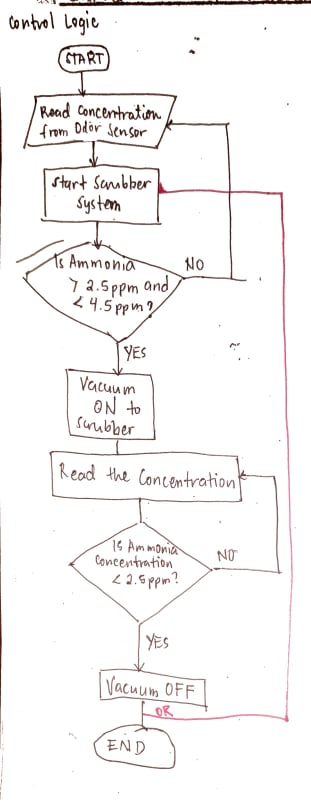 Control Logic
START
Read Concentration
from Odor Sensor
Start Scrubber
System
Is Ammonia
> 2.5ppm and
< 4.5ppm?
NO
YES
Vacuum
ON to
Scrubber
Read the Concentration
Is Ammonia
Concentration
< 2.5ppm?
NO
YES
Vacuum OFF
OR
END